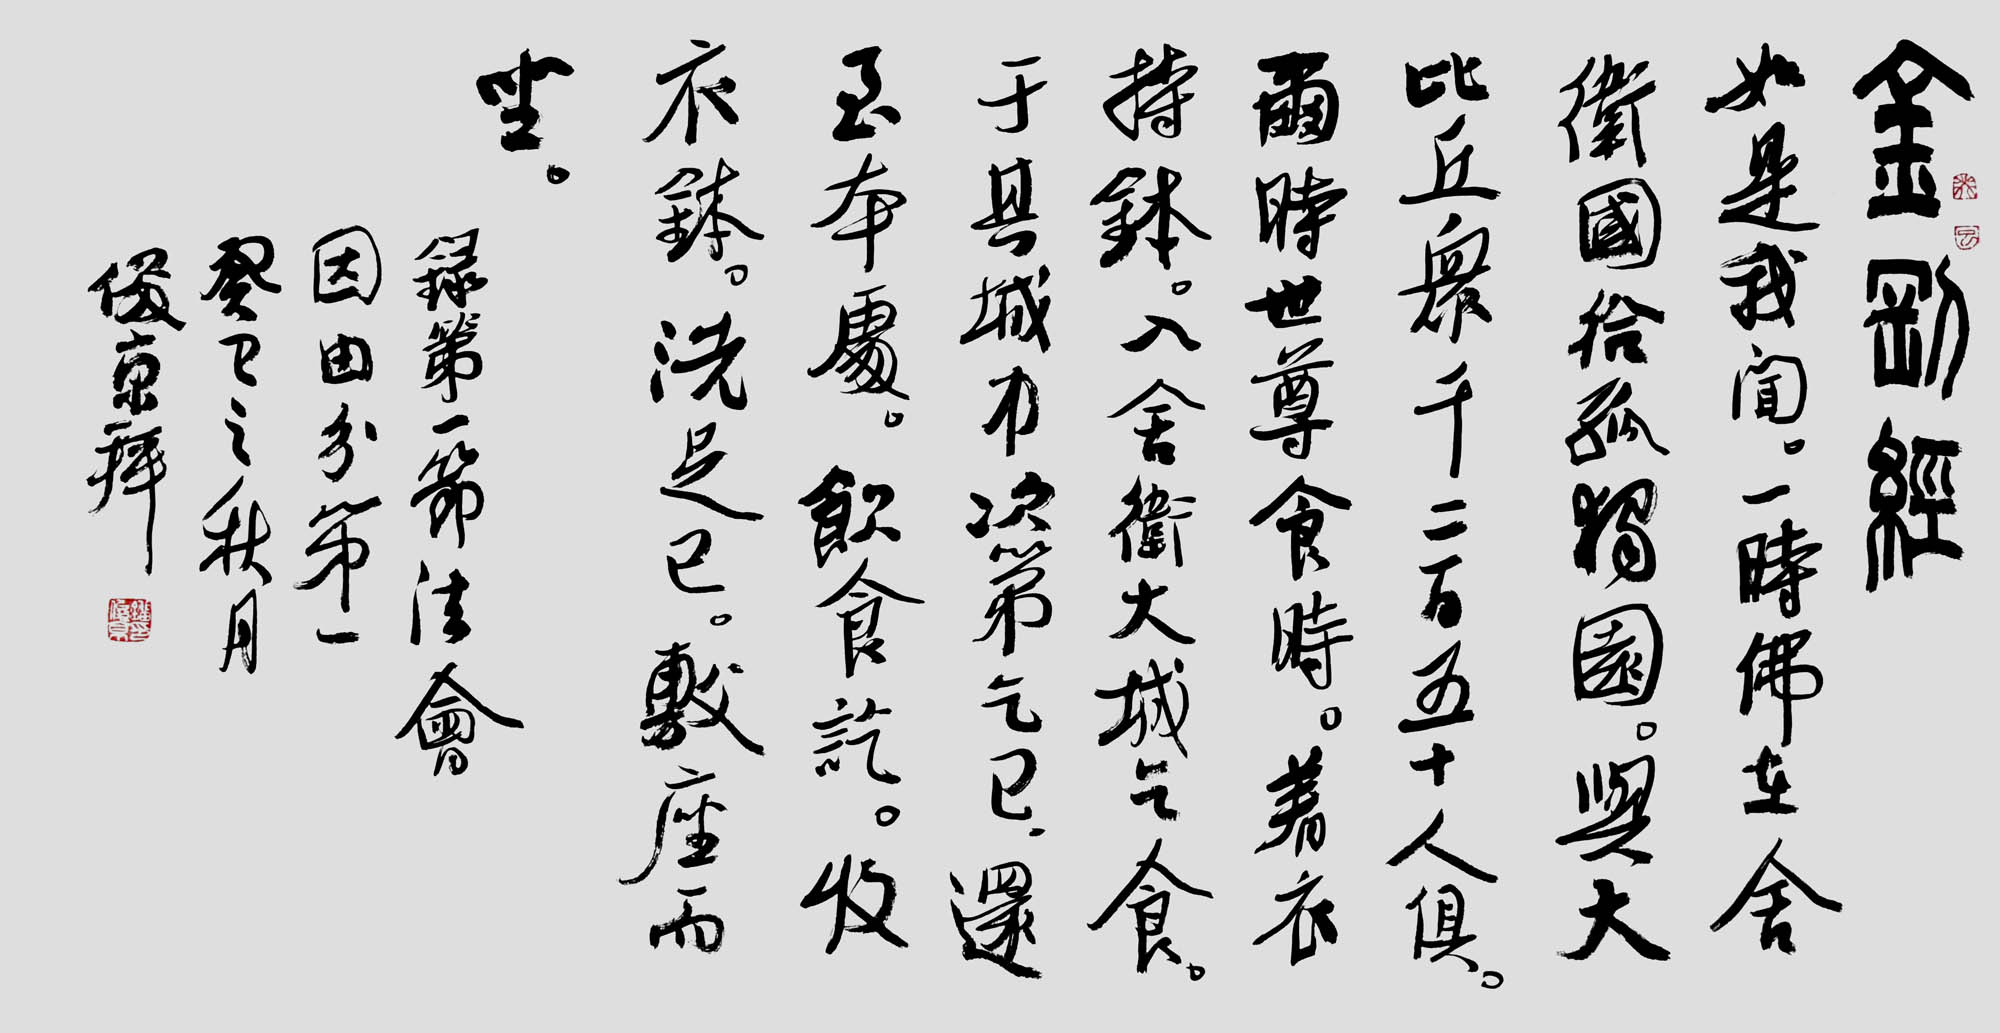 金剛經
如是我聞。一時佛在舍
衛國給孤獨園。與大
比丘衆千二百五十人俱。
爾時世尊食時。着衣
持鉢。入舍衛大城乞食。
于其城中次第乞已、還
至本處。飲食訖。收
衣鉢。洗足已。敷座而
坐。
録第一節法會
因由分第一
癸巳之秋月
京拜